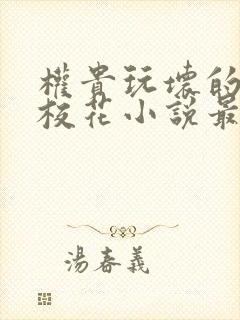 權貴玩壞的
校花小說最
湯春義